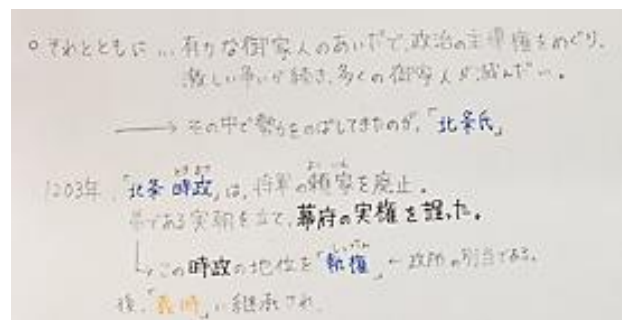 ○ それとともに… 有力な御家人のあいだで、政治の主導権をめぐり、
激しい争いが続き、多くの御家人が滅んだ…。
→ その中で勢力をのばしてきたのが、「北条氏」
1203年、「北条時政」は、将軍の頼家を廃止。
弟である実朝を立て、幕府の実権を握った。
↳ この時政の地位を「執権」 ← 政所の別当である。
後、「義時」に継承され